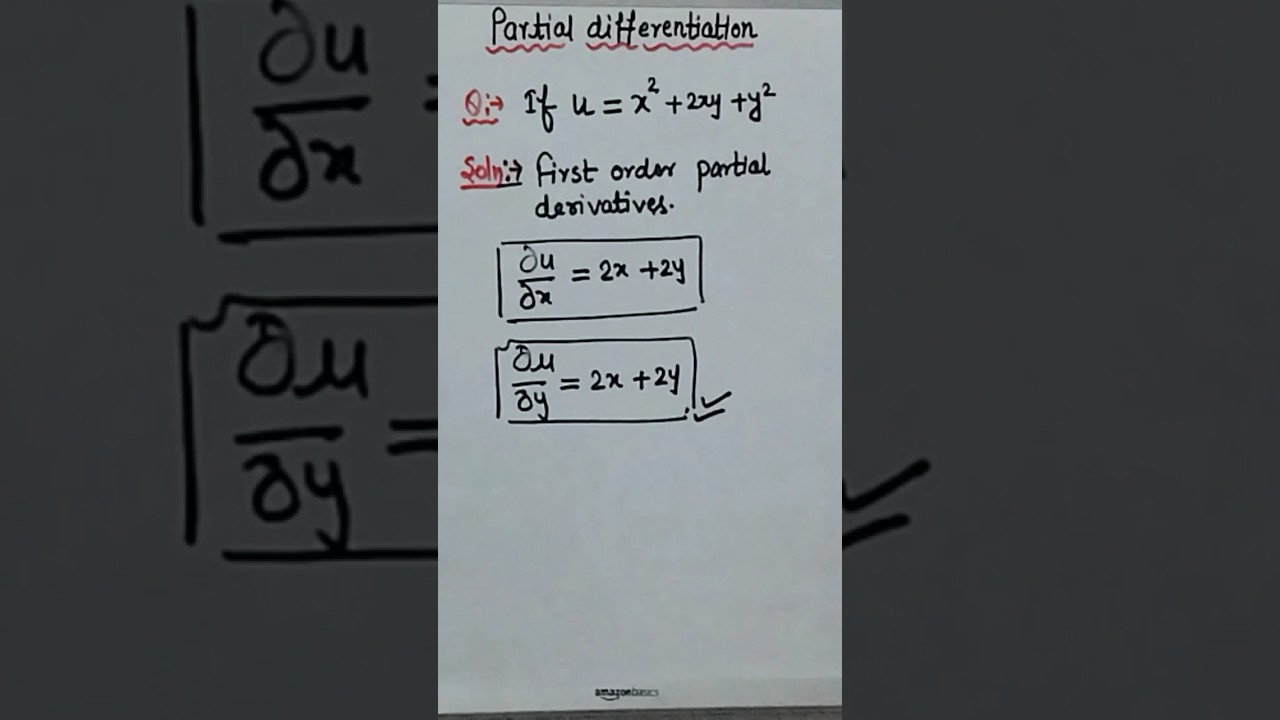 Partial differentiation
Q:→ If u = x² + 2xy + y²
Soln:→ first order partial
derivatives.
∂u/∂x = 2x + 2y
∂u/∂y = 2x + 2y
amazonbasics
∂u/∂x =
∂u/∂y =